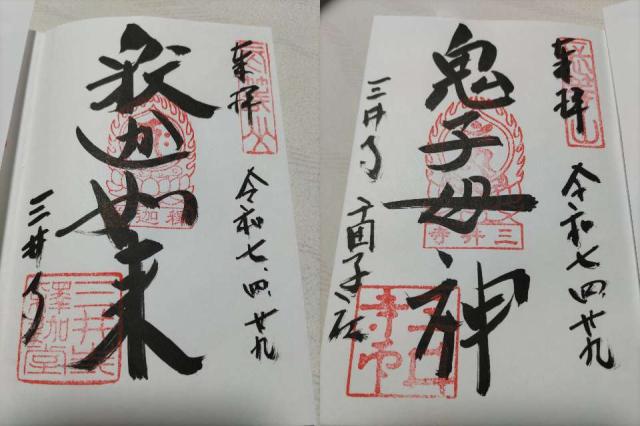 奉拝
令和七、四、廿九
釈迦如来
三井寺
三井寺
釋迦堂
奉拝
令和七、四、廿九
鬼子母神
三井寺
三井寺
三井
寺印